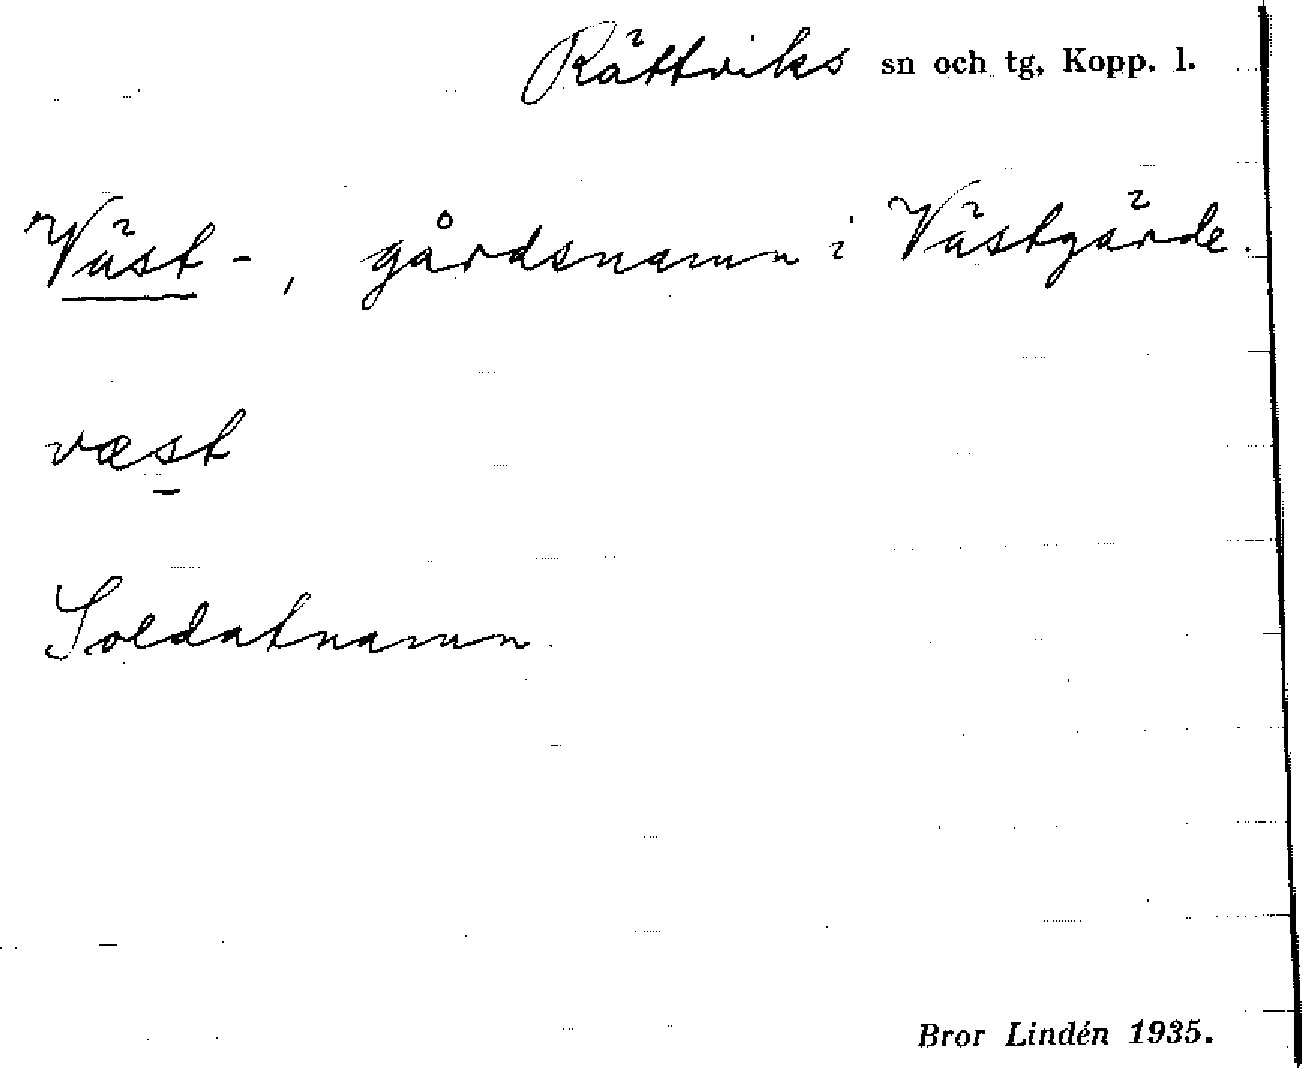 Rättviks sn och tg, Kopp. l.
Väst-, gårdsnamn i Västgärde.
væst
Soldatnamn.
Bror Lindén 1935.